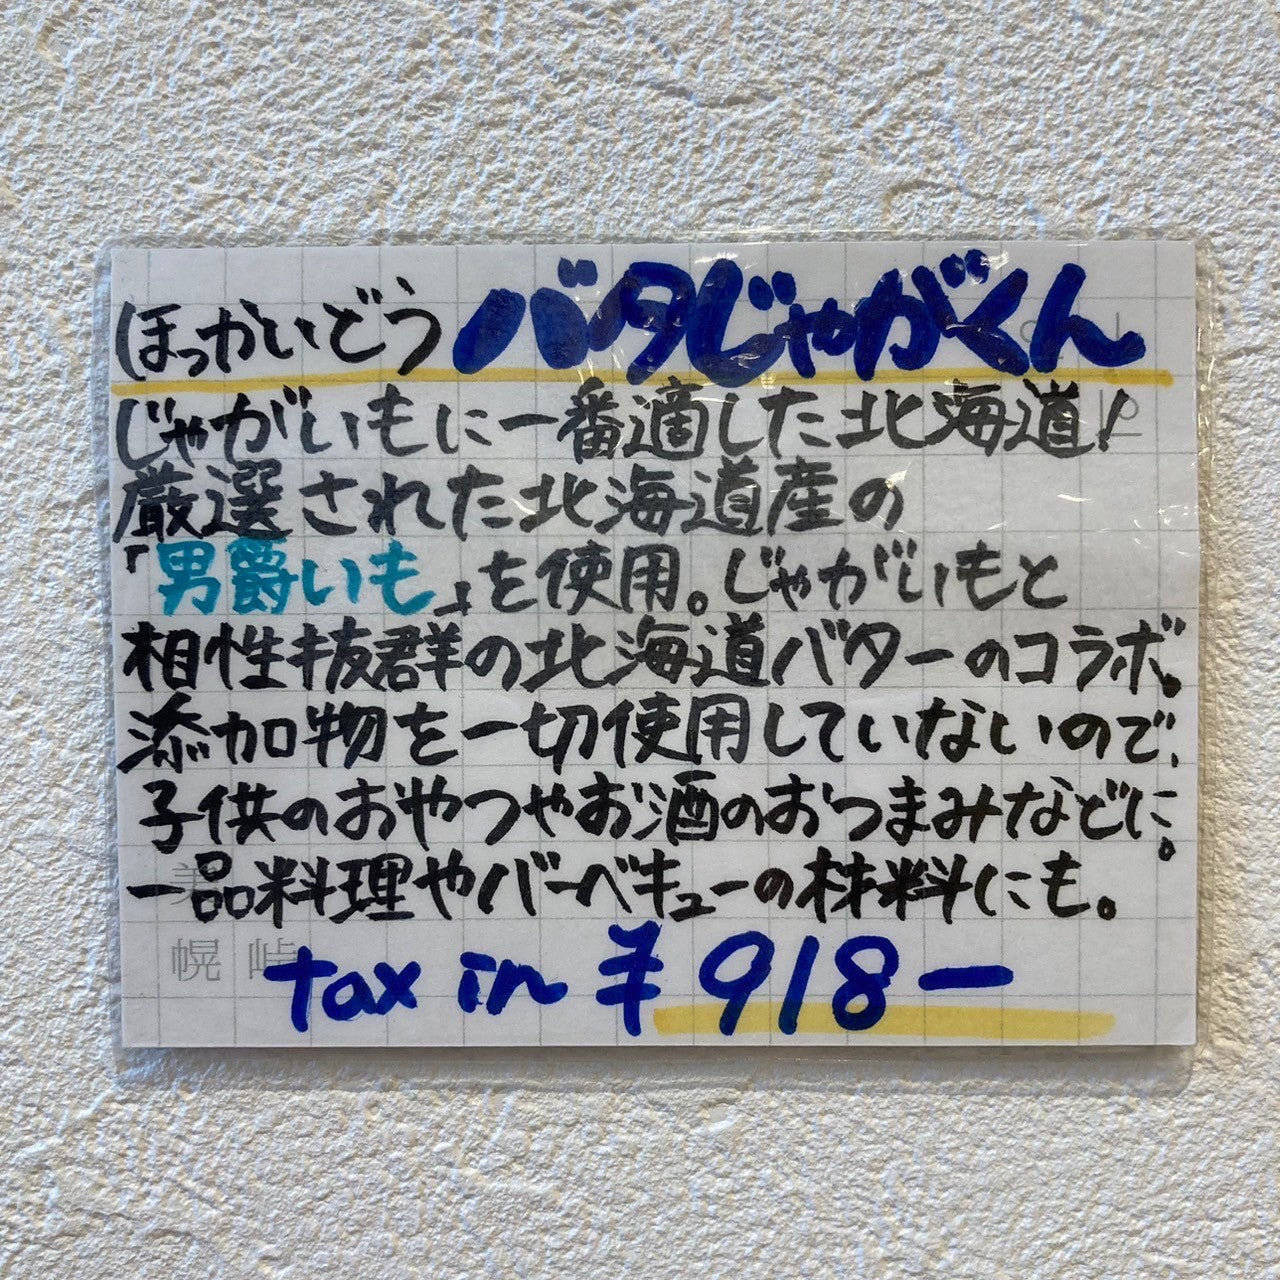 ほっかいどう バタじゃがくん
じゃがいもに一番適した北海道!
厳選された北海道産の
「男爵いも」を使用。じゃがいもと
相性抜群の北海道バターのコラボ。
添加物を一切使用していないので、
子供のおやつやお酒のおつまみなどに。
一品料理やバーベキューの材料にも。
幌 峠
tax in ¥918-